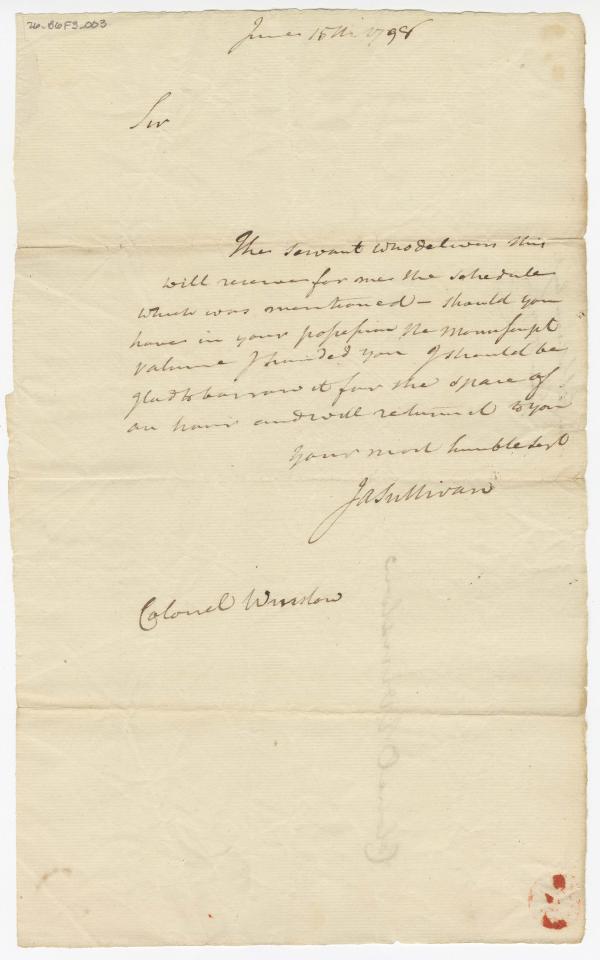 26-B6F3_003
June 15th 1798
Sir
The servant who delivers this
will receive for me the schedule
which was mentioned – should you
have in your possession the Manuscript
Volume I handed you I should be
glad to borrow it for the space of
an hour and will return it to you
your most humble sert
JaSullivan
Colonel Winslow